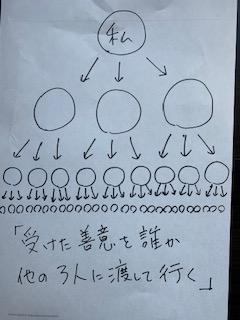 私
「受けた善意を誰か
他の3人に渡して行く」